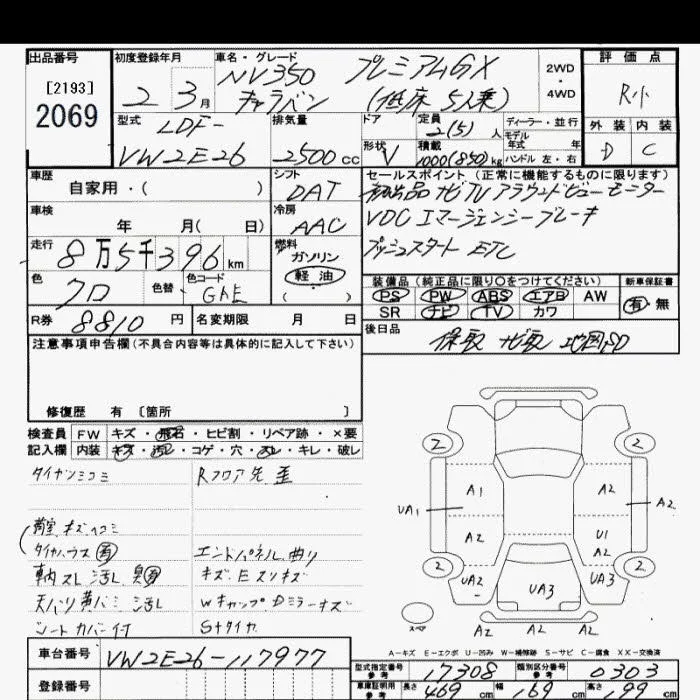 出品番号
[2193]
2069
初度登録年月
2 3月
車名・グレード
NV350 プレミアムGX
キャラバン (低床 5人乗)
2WD
・
4WD
評価点
R小
外装 内装
D C
型式
LDF-
VW2E26
排気量
2500cc
ドア
形状
V
定員
2(5)人
積載
1000(850)kg
ディーラー・並行
モデル
年式 年
ハンドル 左・右
車歴
自家用・( )
シフト
DAT
セールスポイント(正常に機能するものに限ります)
純正品 ナビTV アラウンドビューモニター
VDC エマージェンシーブレーキ
プッシュスタート ETC
車検
年 月( 日)
冷房
AAC
走行
8万5千396km
燃料
ガソリン
軽油
( )
色
クロ
色替
色コード
GAE
装備品(純正品に限り○をつけてください)
PS PW ABS エアB AW
SR ナビ TV カワ
新車保証書
有・無
R券 8810円
名変期限 月 日
後日品
保取 ナビ取 地図SD
注意事項申告欄(不具合内容等は具体的に記入して下さい)
修復歴 有 [箇所 ]
検査員
記入欄
FW キズ・飛石・ヒビ割・リペア跡・×要
内装 キズ・汚レ・コゲ・穴・スレ・キレ・破レ
タイヤハウス 有
車内スレ 汚レ 臭有
シートカバー付
Rフロア先 歪
エンドパネル曲り
キズ.E.スリキズ
Wキャップ Dミラーキズ
Sタイヤ
2 2
A1 A2
UA1 A2
A2 U1
A2
2 2
UA2 UA3 UA3
スペア
A2 A2 A2
A－キズ E－エクボ U－凹み W－補修跡 S－サビ C－腐食 XX－交換済
車台番号 VW2E26-117977
登録番号
型式指定番号
参考
17308
類別区分番号
参考
0303
車庫証明用
参考
長さ 469cm 幅 169cm 高さ 199cm